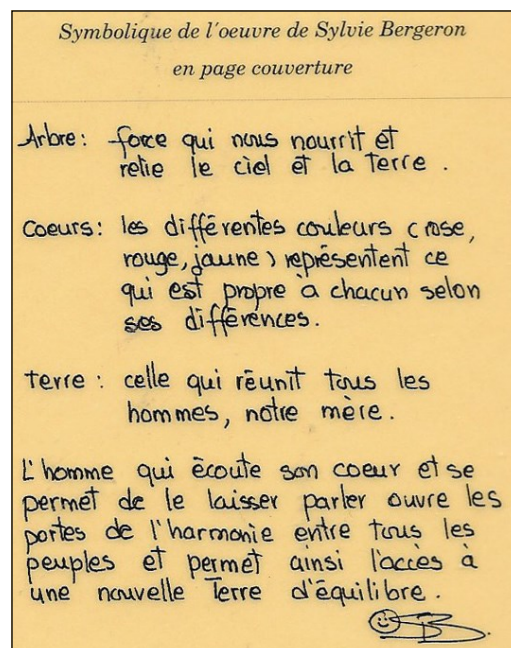 Symbolique de l'oeuvre de Sylvie Bergeron
en page couverture
Arbre : force qui nous nourrit et
relie le ciel et la terre .
Coeurs : les différentes couleurs (rose,
rouge, jaune) représentent ce
qui est propre à chacun selon
ses différences .
Terre : celle qui réunit tous les
hommes, notre mère .
L'homme qui écoute son coeur et se
permet de le laisser parler ouvre les
portes de l'harmonie entre tous les
peuples et permet ainsi l'accès à
une nouvelle Terre d'équilibre .
SB.